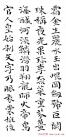 霜金生麗水玉出崑岡劍號巨闕
珠稱夜光果珍李柰菜重芥薑
海鹹河淡鱗潛羽翔龍師火帝
鳥官人皇始制文字乃服衣裳